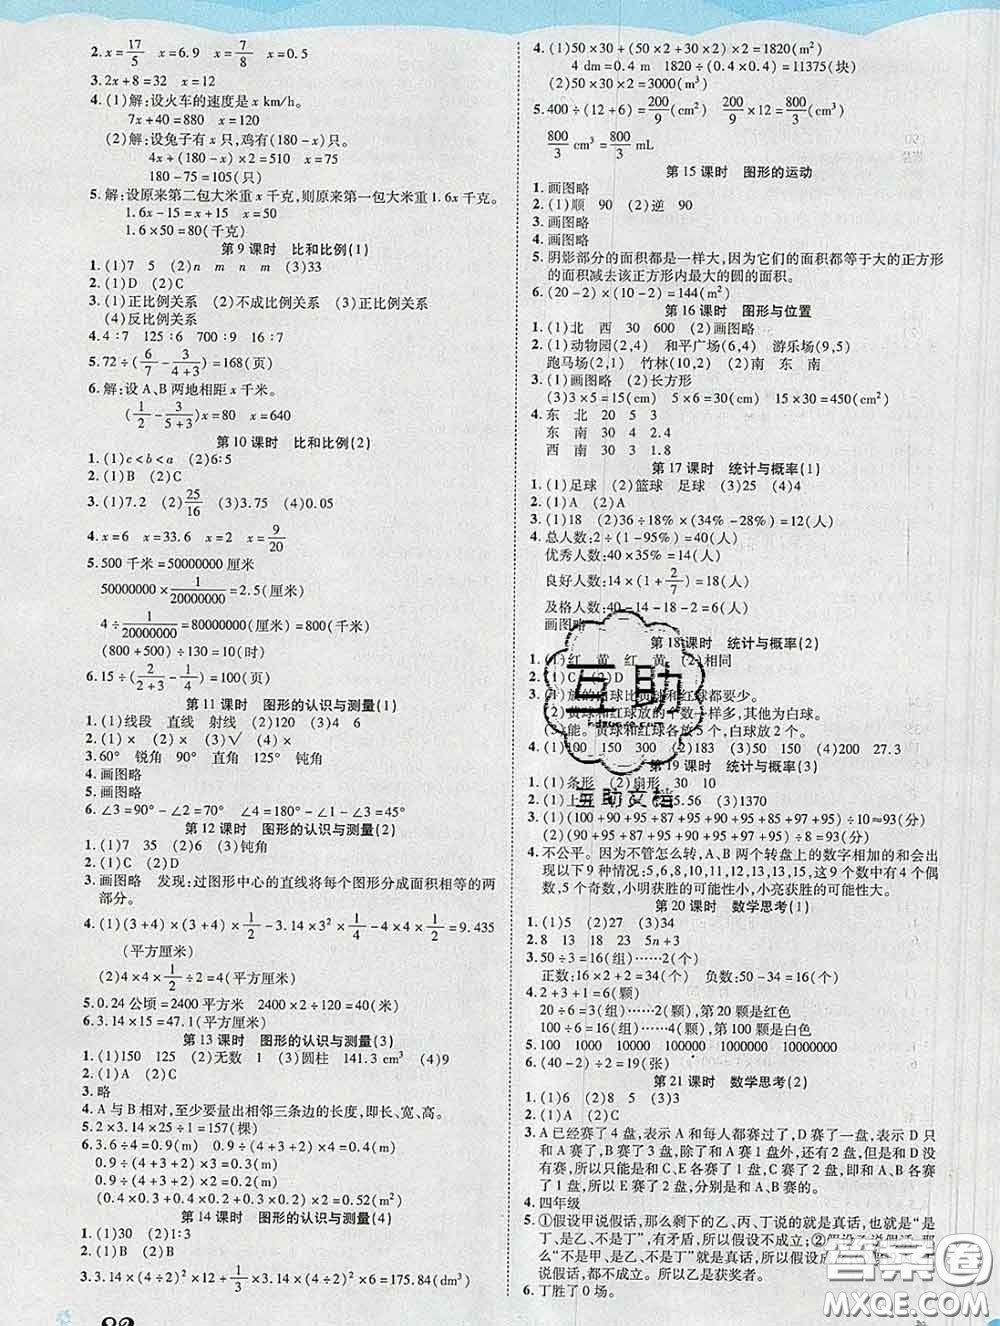 2. x=17/5 x=6.9 x=7/8 x=0.5
3. 2x+8=32 x=12
4. (1)解:设火车的速度是 x km/h。
7x+40=880 x=120
(2)解:设兔子有 x 只,鸡有(180-x)只。
4x+(180-x)×2=510 x=75
180-75=105(只)
5. 解:设原来第二包大米重 x 千克,则原来第一包大米重 1.6x 千克。
1.6x-15=x+15 x=50
1.6×50=80(千克)
第 9 课时 比和比例(1)
1. (1)7 5 (2)n m n m (3)33
2. (1)D (2)C
3. (1)正比例关系 (2)不成比例关系 (3)正比例关系
(4)反比例关系
4. 4∶7 125∶6 700∶9 16∶7
5. 72÷(6/7-3/(4+3))=168(页)
6. 解:设 A、B 两地相距 x 千米。
(1/2-3/(5+3))x=80 x=640
第 10 课时 比和比例(2)
1. (1)c<b<a (2)6∶5
2. (1)B (2)C
3. (1)7.2 (2)25/16 (3)3.75 (4)0.05
4. x=6 x=33.6 x=2 x=9/20
5. 500 千米=50000000 厘米
50000000×1/20000000=2.5(厘米)
4÷1/20000000=80000000(厘米)=800(千米)
(800+500)÷130=10(小时)
6. 15÷(2/(2+3)-1/4)=100(页)
第 11 课时 图形的认识与测量(1)
1. (1)线段 直线 射线 (2)10 (3)4 6
2. (1)× (2)× (3)√ (4)×
3. 60° 锐角 90° 直角 125° 钝角
4. 画图略
5. 画图略
6. ∠3=90°-∠2=70° ∠1=90°-∠3=20°
第 12 课时 图形的认识与测量(2)
1. (1)7 35 (2)6 (3)钝角
2. (1)C (2)D
3. 画图略 发现:过图形中心的直线将每个图形分成面积相等的两
部分。
4. (1)(3+4)×(3+4)×1/2-3.14×3²×1/4-4×4×1/2=9.435
(平方厘米)
(2)4×4×1/2÷2=4(平方厘米)
5. 0.24 公顷=2400 平方米 2400×2÷120=40(米)
6. 3.14×15=47.1(平方厘米)
第 13 课时 图形的认识与测量(3)
1. (1)150 125 (2)无数 1 (3)圆柱 141.3 cm³ (4)9
2. (1)A (2)C
3. 略
4. A 与 B 相对,至少要量出相邻三条边的长度,即长、宽、高。
5. 3.14×(30×2+15×2)×25÷1=157(棵)
6. 3.6÷4=0.9(m) 0.9÷(4+3+2)×4=0.4(m)
0.9÷(4+3+2)×3=0.3(m)
0.9÷(4+3+2)×2=0.2(m)
(0.4×0.3+0.4×0.2+0.3×0.2)×2=0.52(m²)
第 14 课时 图形的认识与测量(4)
1. (1)30 (2)1∶3
2. (1)B (2)C
3. 3.14×(4÷2)²×12+1/3×3.14×(4÷2)²×6=175.84(dm³)
4. (1)50×30+(50×2+30×2)×2=1820(m²)
4 dm=0.4 m 1820÷(0.4×0.4)=11375(块)
(2)50×30×2=3000(m³)
5. 400÷(12+6)=200/9(cm²) 200/9×12=800/3(cm³)
800/3 cm³=800/3 mL
第 15 课时 图形的运动
1. 画图略
2. (1)顺 90 (2)逆 90
3. 画图略
4. 画图略
5. 阴影部分的面积都是一样大,因为它们的面积都等于大的正方形
的面积减去该正方形内最大的圆的面积。
6. (20-2)×(10-2)=144(m²)
第 16 课时 图形与位置
1. (1)北 西 30 600 (2)画图略
2. (1)动物园(2,4) 和平广场(6,4) 游乐场(5,5)
跑马场(2,1) 竹林(10,2) (2)南 东 南
3. (1)画图略 (2)长方形
(3)3×5=15(cm) 5×6=30(cm) 15×30=450(cm²)
4. 东 北 20 5 3
东 南 30 4 2.4
西 南 30 5 1.8
第 17 课时 统计与概率(1)
1. (1)足球 (2)篮球 足球 (3)25 (4)4
2. (1)A (2)A
3. (1)18 (2)36÷18%×(34%-28%)=12(人)
4. 总人数:2÷(1-95%)=40(人)
优秀人数:40×35%=14(人)
良好人数:14×(1+2/7)=18(人)
及格人数:40-14-18-2=6(人)
画图略
第 18 课时 统计与概率(2)
1. (1)红 黄 红 黄 (2)相同
2. (1)C (2)D
3. (1)放的白球比黄球和红球都要少。
(2)黄球和红球放的个数一样多,其他为白球。
(3)能。黄球和红球各放 5 个,白球放 2 个。
4. (1)100 150 300 (2)183 (3)50 150 (4)200 27.3
第 19 课时 统计与概率(3)
1. (1)条形 (2)扇形 30 10
2. (1)上 5.56 (3)1370
3. (1)(100+90+95+87+95+90+95+85+97+95)÷10≈93(分)
(2)(90+95+87+95+90+95+97+95)÷8=93(分)
4. 不公平。因为不管怎么转,A、B 两个转盘上的数字相加的和会出
现以下 9 种情况:5,6,8,10,11,12,13,15,这 9 个数中有 4 个偶
数,5 个奇数,小明获胜的可能性小,小亮获胜的可能性大。
第 20 课时 数学思考(1)
1. (1)5 (2)27 (3)34
2. 8 13 18 23 5n+3
3. 50÷3=16(组)……2(个)
正数:16×2+2=34(个) 负数:50-34=16(个)
4. 2+3+1=6(颗)
20÷6=3(组)……2(颗),第 20 颗是红色
100÷6=16(组)……4(颗),第 100 颗是白色
5. 100 1000 10000 100000 10000000
6. (40-2)÷2=19(张)
第 21 课时 数学思考(2)
1. (1)6 (2)8 5 (3)3
2. (1)A (2)C
3. A 已经赛了 4 盘,表示 A 和每人都赛过了,D 赛了一盘,表示 D 只
和 A 赛了,B 赛了 3 盘,除了和 A 赛 1 盘外,还有 2 盘,但是和 D 没
有赛,所以只能是和 C、E 各赛了 1 盘,C 赛了 2 盘,即和 A、B 各赛
了 1 盘,所以 E 赛了 2 盘,分别是和 A、B 赛的。
4. 四年级
5. ①假设甲说假话,那么剩下的乙、丙、丁说的就是真话,也就是“是
丁、是乙、不是丁”,有矛盾,所以假设不成立;②假设乙说假话,那
么“不是甲、是乙、不是丁”就是真话,所以假设成
丁说假话,都不成立。所以乙是获奖者。
6. 丁胜了 0 场。
互助
互助文档
答案圈
MXQE.COM